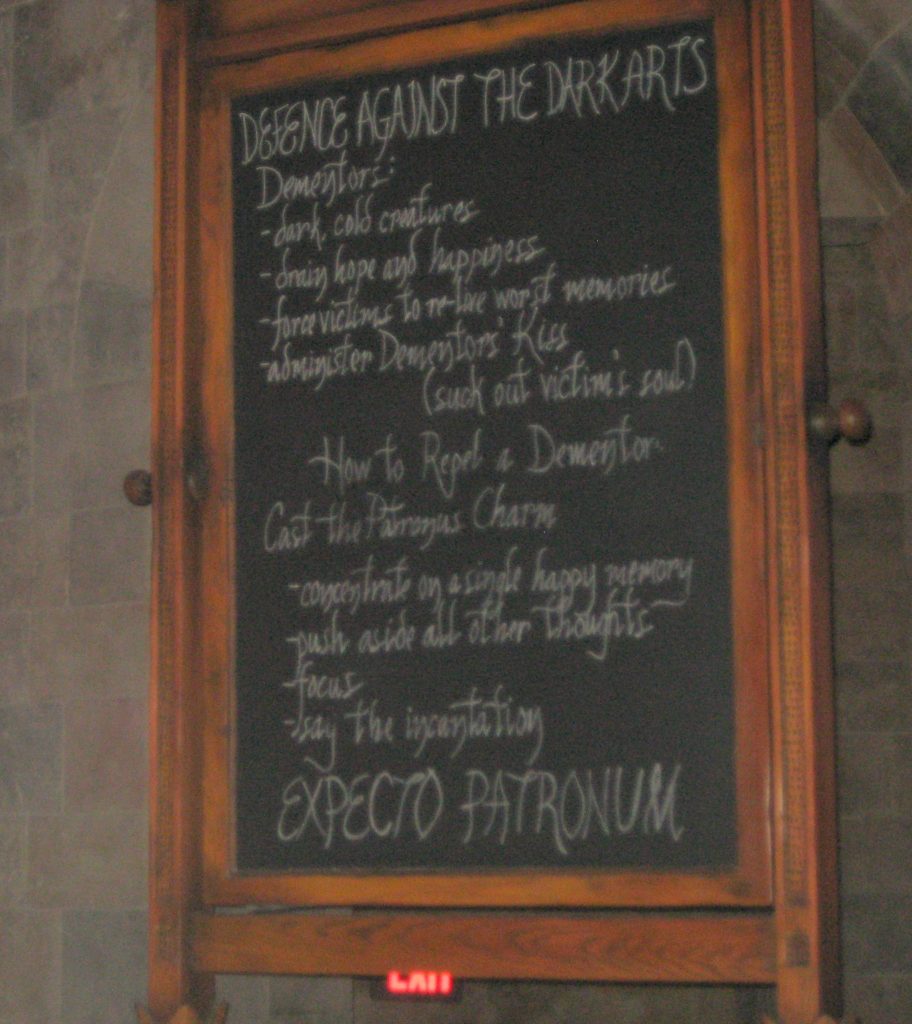 DEFENCE AGAINST THE DARK ARTS
Dementors:
-dark, cold creatures
-drain hope and happiness
-force victims to re-live worst memories
-administer Dementors' Kiss
(suck out victim's soul)
How to Repel a Dementor:
Cast the Patronus Charm
-concentrate on a single happy memory
-push aside all other thoughts
-focus
-say the incantation
EXPECTO PATRONUM
EXIT